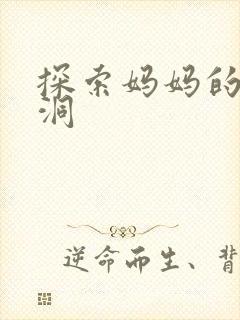 探索妈妈的
洞
逆命而生、背